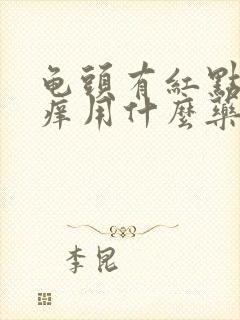 龟頭有紅點
痒用什麽藥
李昆